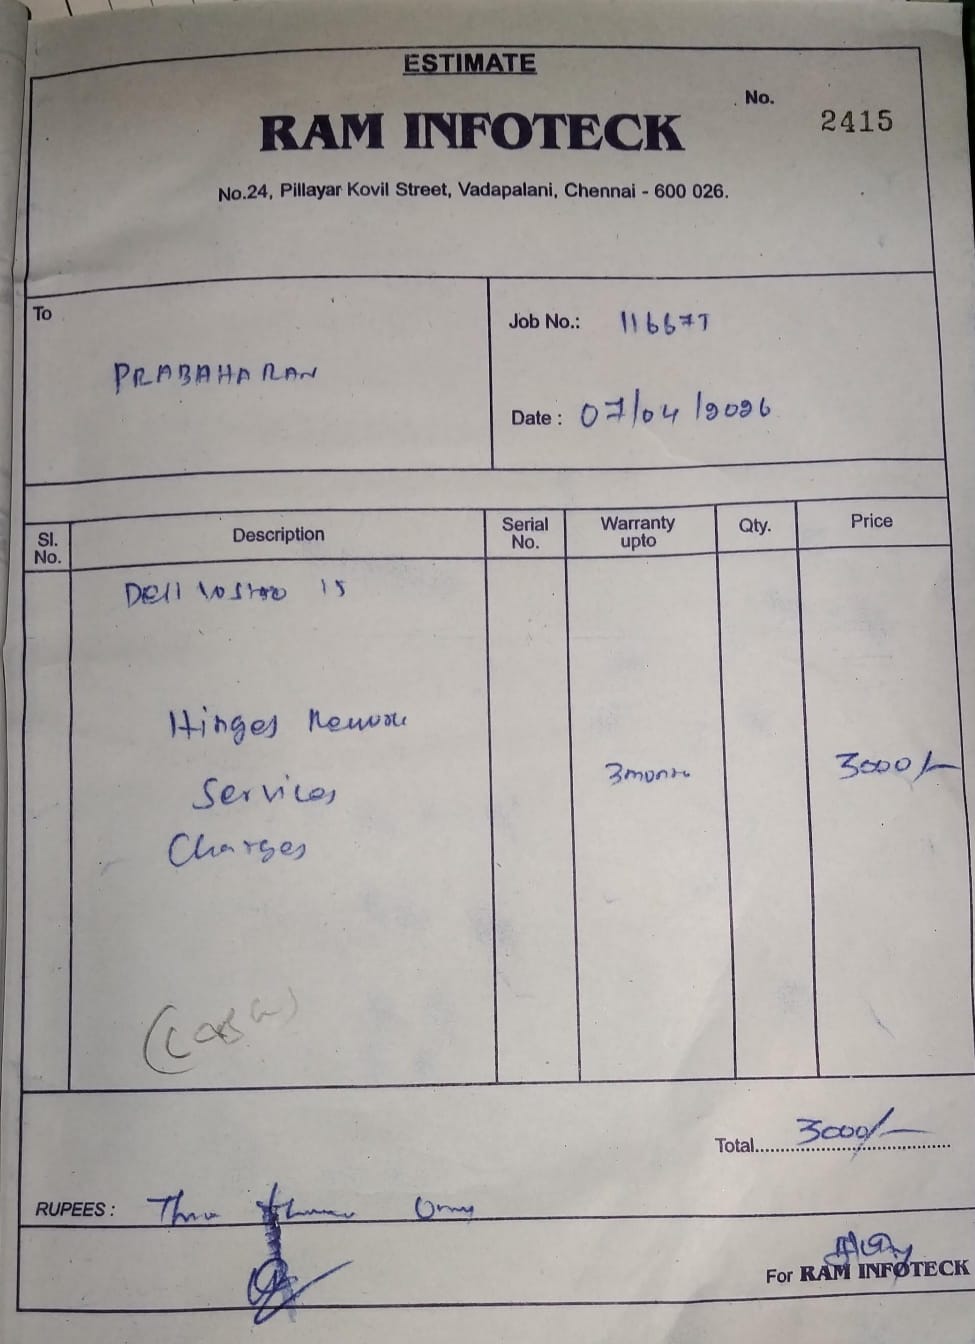 ESTIMATE
No.
2415
RAM INFOTECK
No.24, Pillayar Kovil Street, Vadapalani, Chennai - 600 026.
To
PRABAHARAN
Job No.: 116677
Date : 07/04/2026
Sl. No. Description Serial No. Warranty upto Qty. Price
Dell Vostro 15
Hinges
Services 3 month 3000/-
Charges
(Cash)
Total 3000/-
RUPEES : Three thousand Only
For RAM INFOTECK